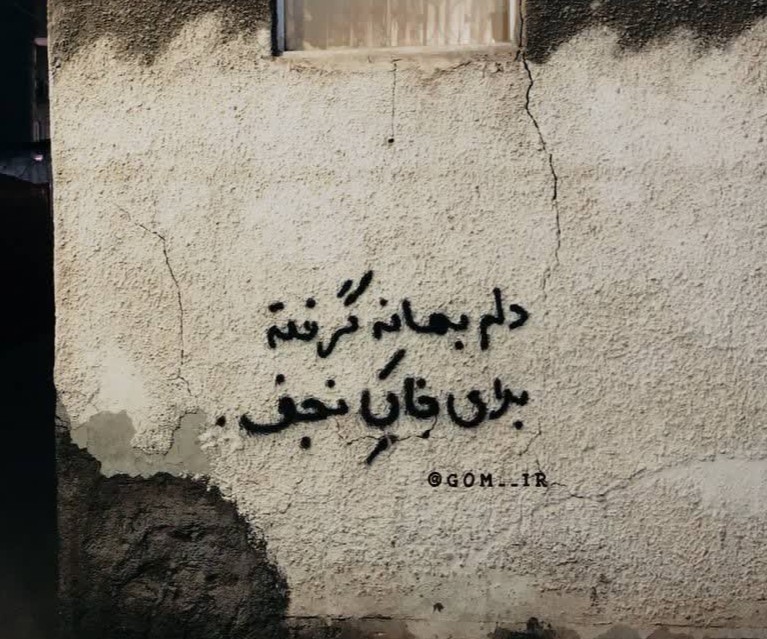 دلم بهانه گرفته
برای خاکِ نجف .
@GOM__IR